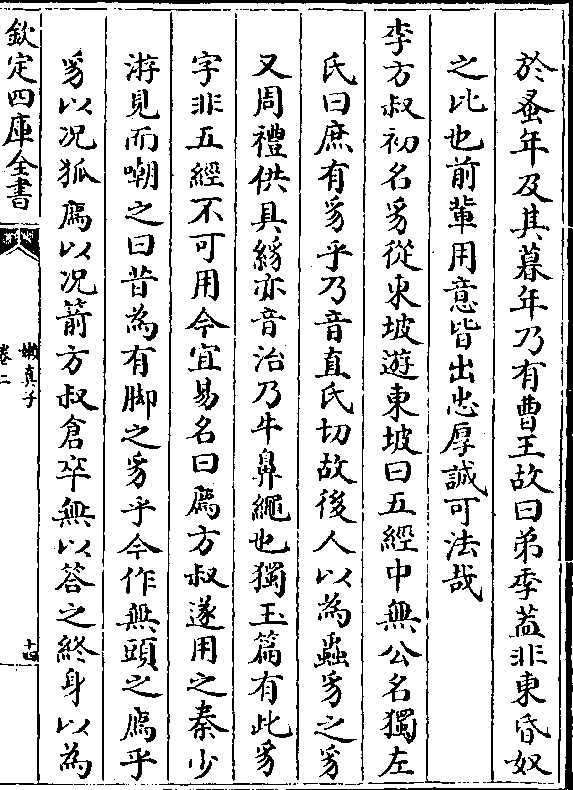 於蚤年及其暮年乃有曹王故曰弟季葢非東昏奴
之比也前輩用意皆出忠厚誠可法哉
李方叔初名豸從東坡遊東坡曰五經中無公名獨左
氏曰庶有豸乎乃音直氏切故後人以為蟲豸之豸
又周禮供具絼亦音治乃牛鼻繩也獨玉篇有此豸
字非五經不可用今宜易名曰廌方叔遂用之秦少
游見而嘲之曰昔為有脚之豸乎今作無頭之廌乎
豸以况狐廌以况箭方叔倉卒無以答之終身以為
欽定四庫全書
嬾真子
卷二
十四